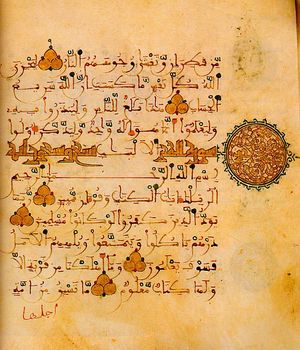 من قطران وتغشى وجوههم النار ليجزي
الله كل نفس ما كسبت ان الله سريع
الحساب هذا بلغ للناس ولينذروا به
وليعلموا انما هو اله وحد وليذكر اولوا
الالباب
بسم الله الرحمن الرحيم
الر تلك ايت الكتب وقران مبين ربما
يود الذين كفروا لو كانوا مسلمين
ذرهم ياكلوا ويتمتعوا ويلههم الامل
فسوف يعلمون وما اهلكنا من قرية الا
ولها كتاب معلوم ما تسبق من امة
اجلها